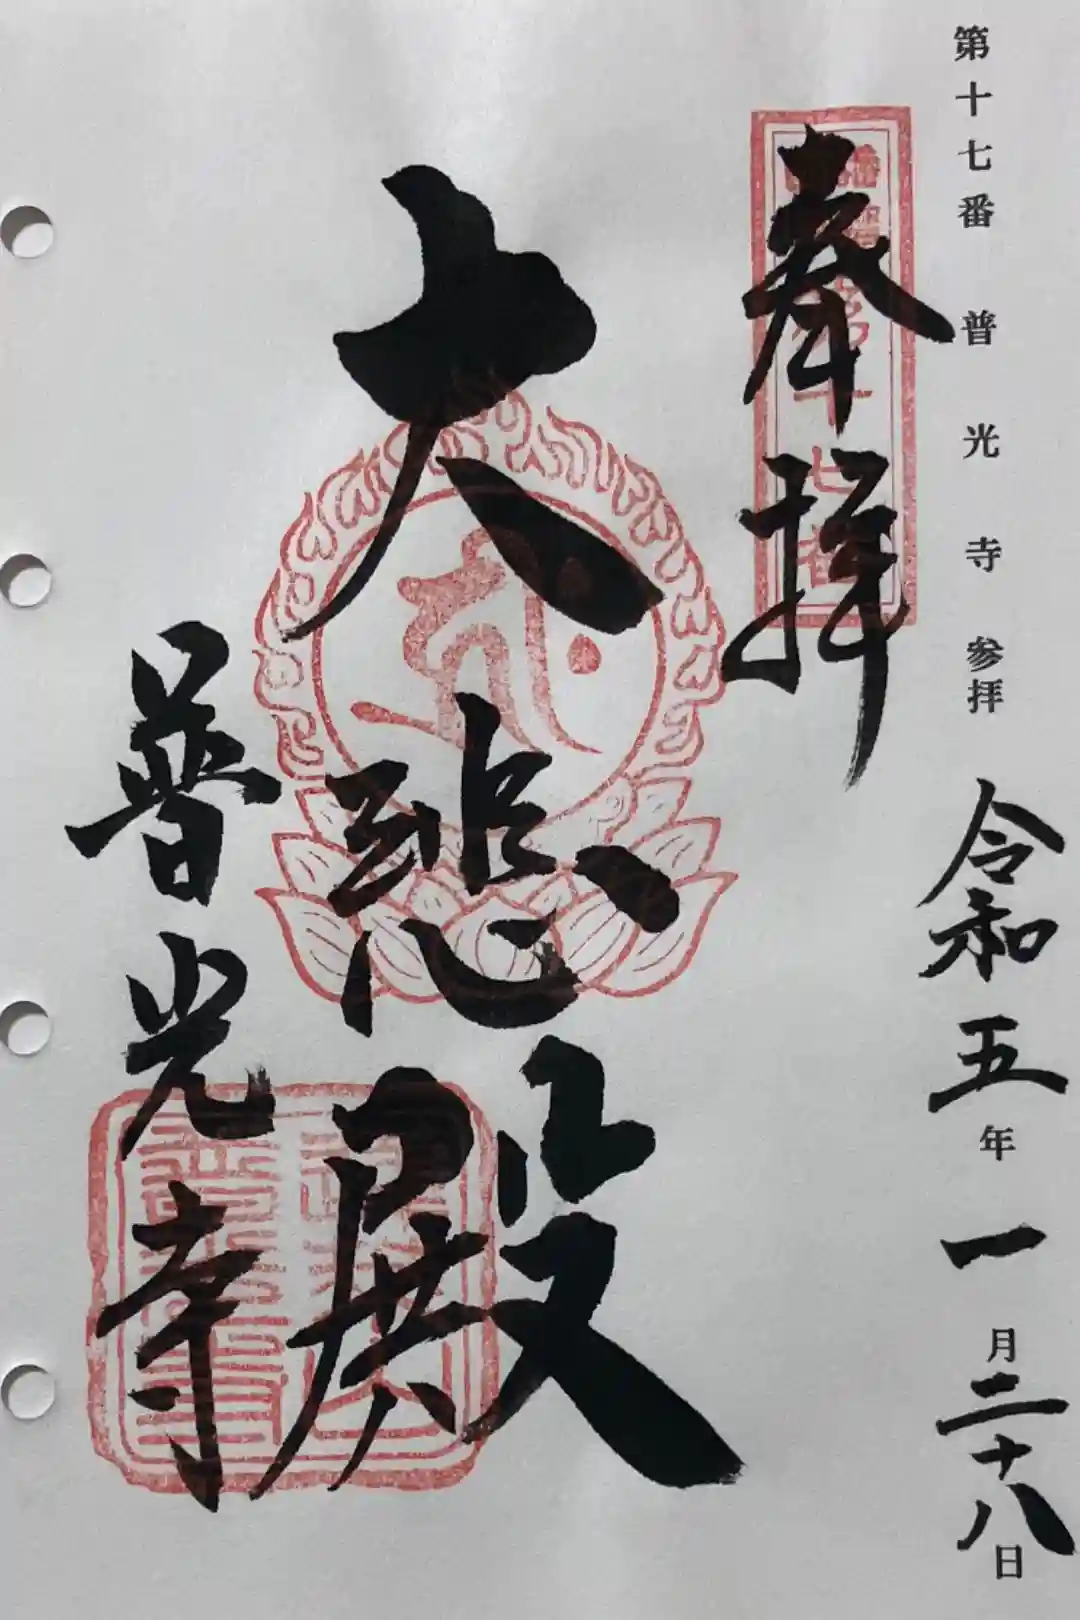 第十七番 普光寺参拝 令和五年一月二十八日
奉拝
大悲殿
普光寺